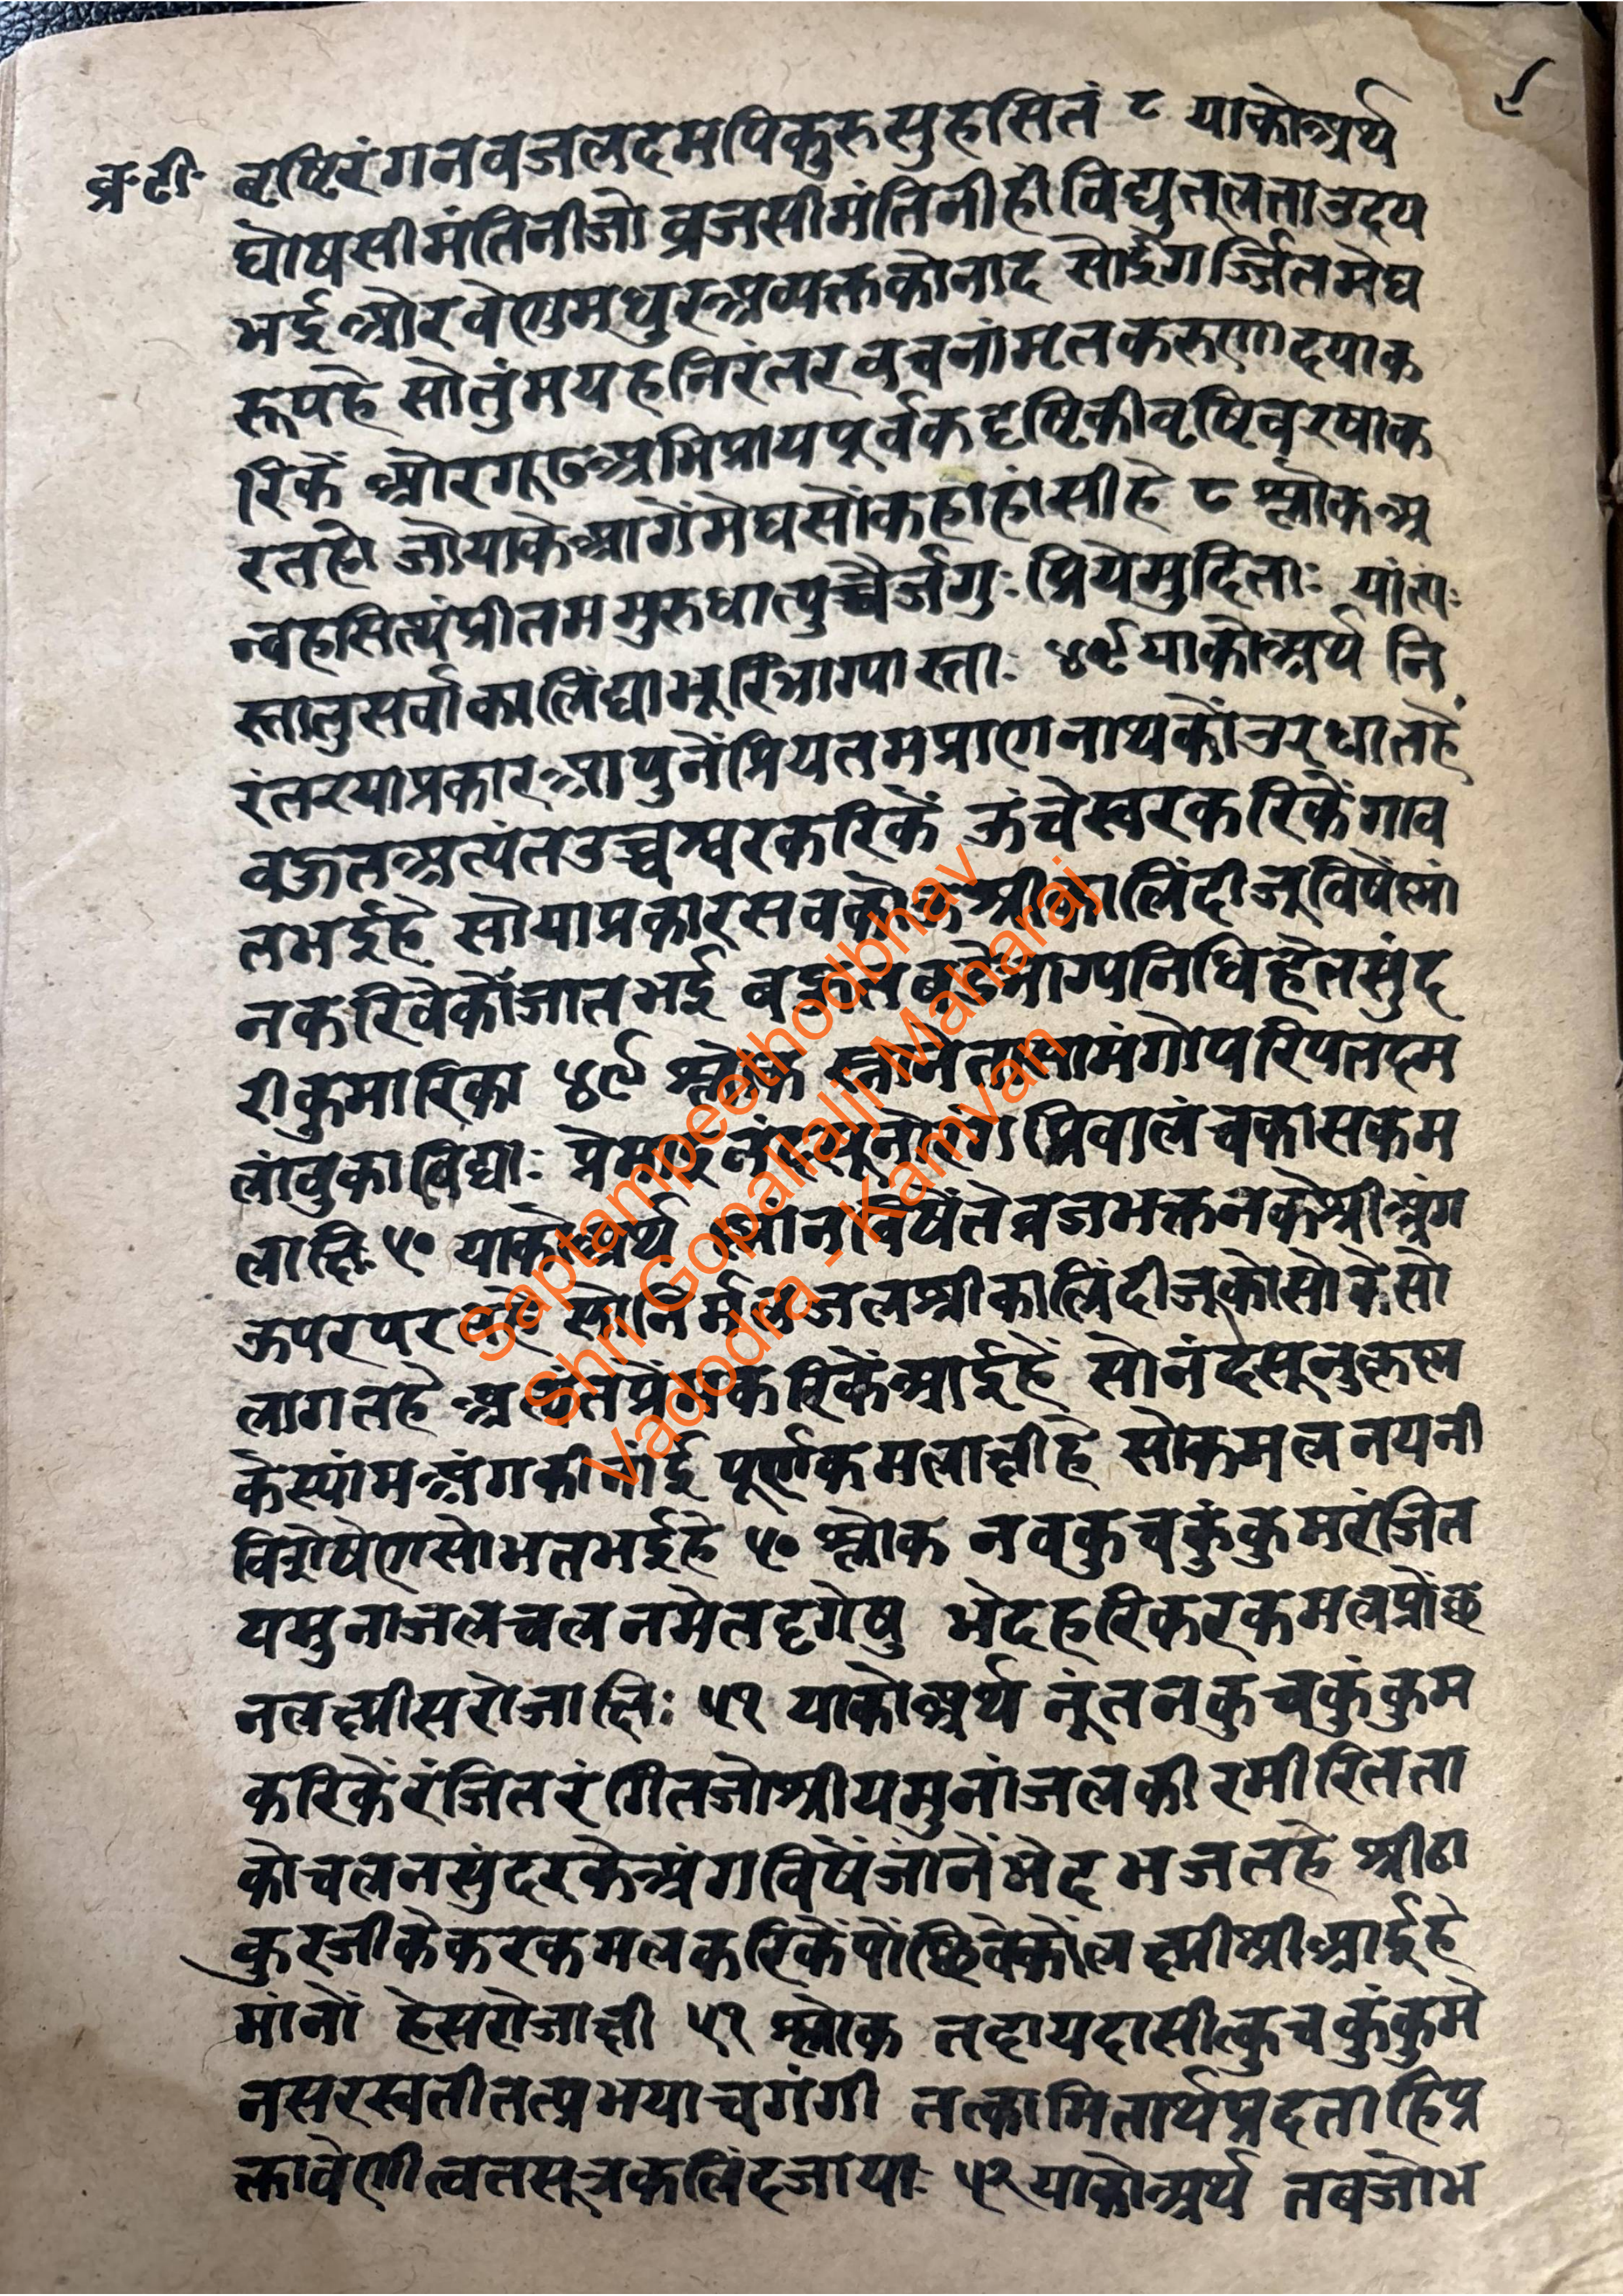 ९
व्र॰टी॰ वृष्टिरंगनवजलदमपिकुरुसुहसितं ८ याकोअर्थ
घोषसीमंतिनीजो व्रजसीमंतिनीही विद्युत्लताउदय
भई और वेणुमधुरअव्यक्तकोनाद सोईगर्ज्जितमेघ
रूपहे सोतुंमयहनिरंतरवचनांमृतकरुणादयाक
रिकें औरगूढअभिप्रायपूर्वकदृष्टिकीवृष्टिवरषाक
रतहो जोयाकेआगेंमेघसोंकहाहांसीहे ८ श्लोक अ
न्वहमित्थंप्रीतममुरुधात्युच्चैर्जगुः प्रियेमुदिताः यांत्यः
स्तातुसर्वाकालिंद्याभूरिभाग्यास्ताः ४९ याकोअर्थ नि
रंतरयाप्रकारआपुनेंप्रियतमप्राणनाथकोंउरधातहें
वऊतअत्यंतउच्चश्वरकरिकें ऊंचेस्वरकरिकेंगाव
तभईहे सोयाप्रकारसवकोऊश्रीकालिंदीजूविषेंस्नां
नकरिवेकोंजातभई वऊतबडेभाग्यनिधिहेतसुंद
रीकुमारिका ४९ श्लोक स्नानेतासामंगोपरिपतदम
लांवुकाविद्याः
लाक्षि ५० याकोअर्थ स्नांनविषेंतेव्रजभक्तनकेश्रीअंग
ऊपरपरतहे सोनिर्मलजलश्रीकालिंदीजूकोसोकेसो
लागतहे अत्यंतप्रेंमकरिकेंआईहें सोनंदसूनुकृष्ण
केस्यांमअंगकीनांई पूर्णकमलाक्षीहे सोकमलनयनी
विशेषेणसोभतभईहे ५० श्लोक नवकुचकुंकुमरंजित
यमुनाजलचलनमेतदृगेषु भेदहरिकरकमलप्रोंछ
नलक्ष्मीसरोजाक्षि: ५१ याकोअर्थ नूंतनकुचकुंकुम
करिकेंरंजितरंगितजोश्रीयमुनांजलकी रमीरितता
कोचलनसुंदरकेअंगविषेंजानेंभेदभजतहे श्रीठा
कुरजीकेकरकमलकरिकेंपोंछिवेकोंलक्ष्मीश्रीआईहे
मांनों हेसरोजाक्षी ५१ श्लोक तदायदासीत्कुचकुंकुमे
नसरस्वतीतत्प्रभयाचगंगी तत्कामितार्थप्रदताहिप्र
क्तावेणीत्वतसूत्रकलिंदजायाः ५२ याकोअर्थ तबजोभ
Saptampeethodbhav
Shri Gopallalji Maharaj
Vadodra - Kamvan